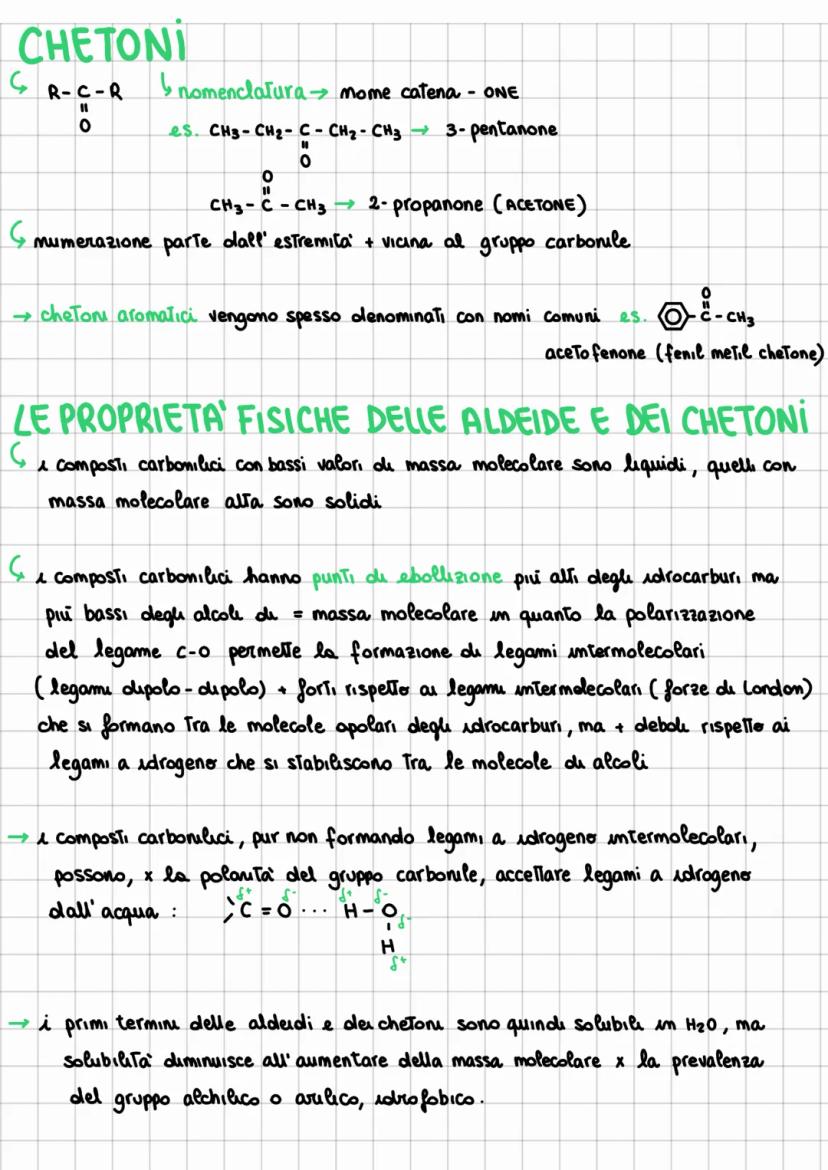 CHETONI
R-C-R nomenclatura → nome catena - ONE
=
O
es. CH3-CH2-C-CH2-CH3 → 3-pentanone
=
O
O
=
CH3-C-CH3 → 2-propanone (ACETONE)
numerazione parte dall'estremità + vicina al gruppo carbonile
→ chetoni aromatici vengono spesso denominati con nomi comuni es. C-CH3
O
=
acetofenone (fenil metil chetone)
LE PROPRIETA' FISICHE DELLE ALDEIDE E DEI CHETONI
i composti carbonilici con bassi valori di massa molecolare sono liquidi, quelli con
massa molecolare alta sono solidi
i composti carbonilici hanno punti di ebollizione più alti degli idrocarburi ma
più bassi degli alcoli di = massa molecolare in quanto la polarizzazione
del legame C-O permette la formazione di legami intermolecolari
(legami dipolo-dipolo) + forti rispetto ai legami intermolecolari (forze di London)
che si formano tra le molecole apolari degli idrocarburi, ma + deboli rispetto ai
legami a idrogeno che si stabiliscono tra le molecole di alcoli
→ i composti carbonilici, pur non formando legami a idrogeno intermolecolari,
possono, x la polarità del gruppo carbonile, accettare legami a idrogeno
δ+ δ- δ+ δ-
dall'acqua : C=O ... H-O δ-
H
δ+
→ i primi termini delle aldeidi e dei chetoni sono quindi solubili in H2O, ma
solubilità diminuisce all'aumentare della massa molecolare x la prevalenza
del gruppo alchilico o arilico, idrofobico.